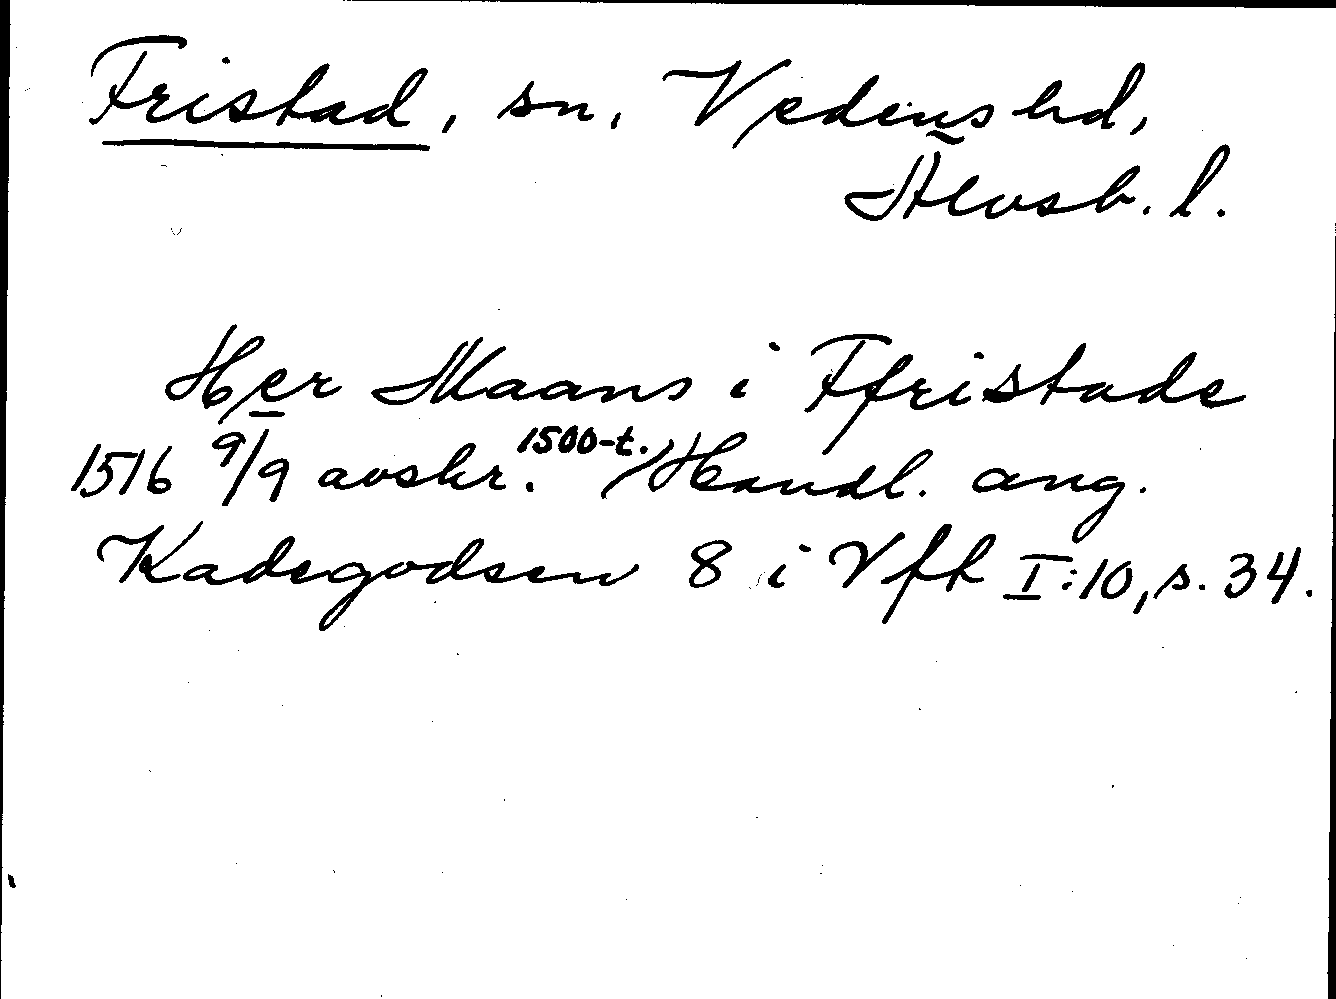 Fristad, sn, Vedens hd,
Älvsb. l.
Her Maans i Ffristade
1516 9/9 avskr. 1500-t. Handl. ang.
Kadegodsen 8 i Vfh I:10, s. 34.